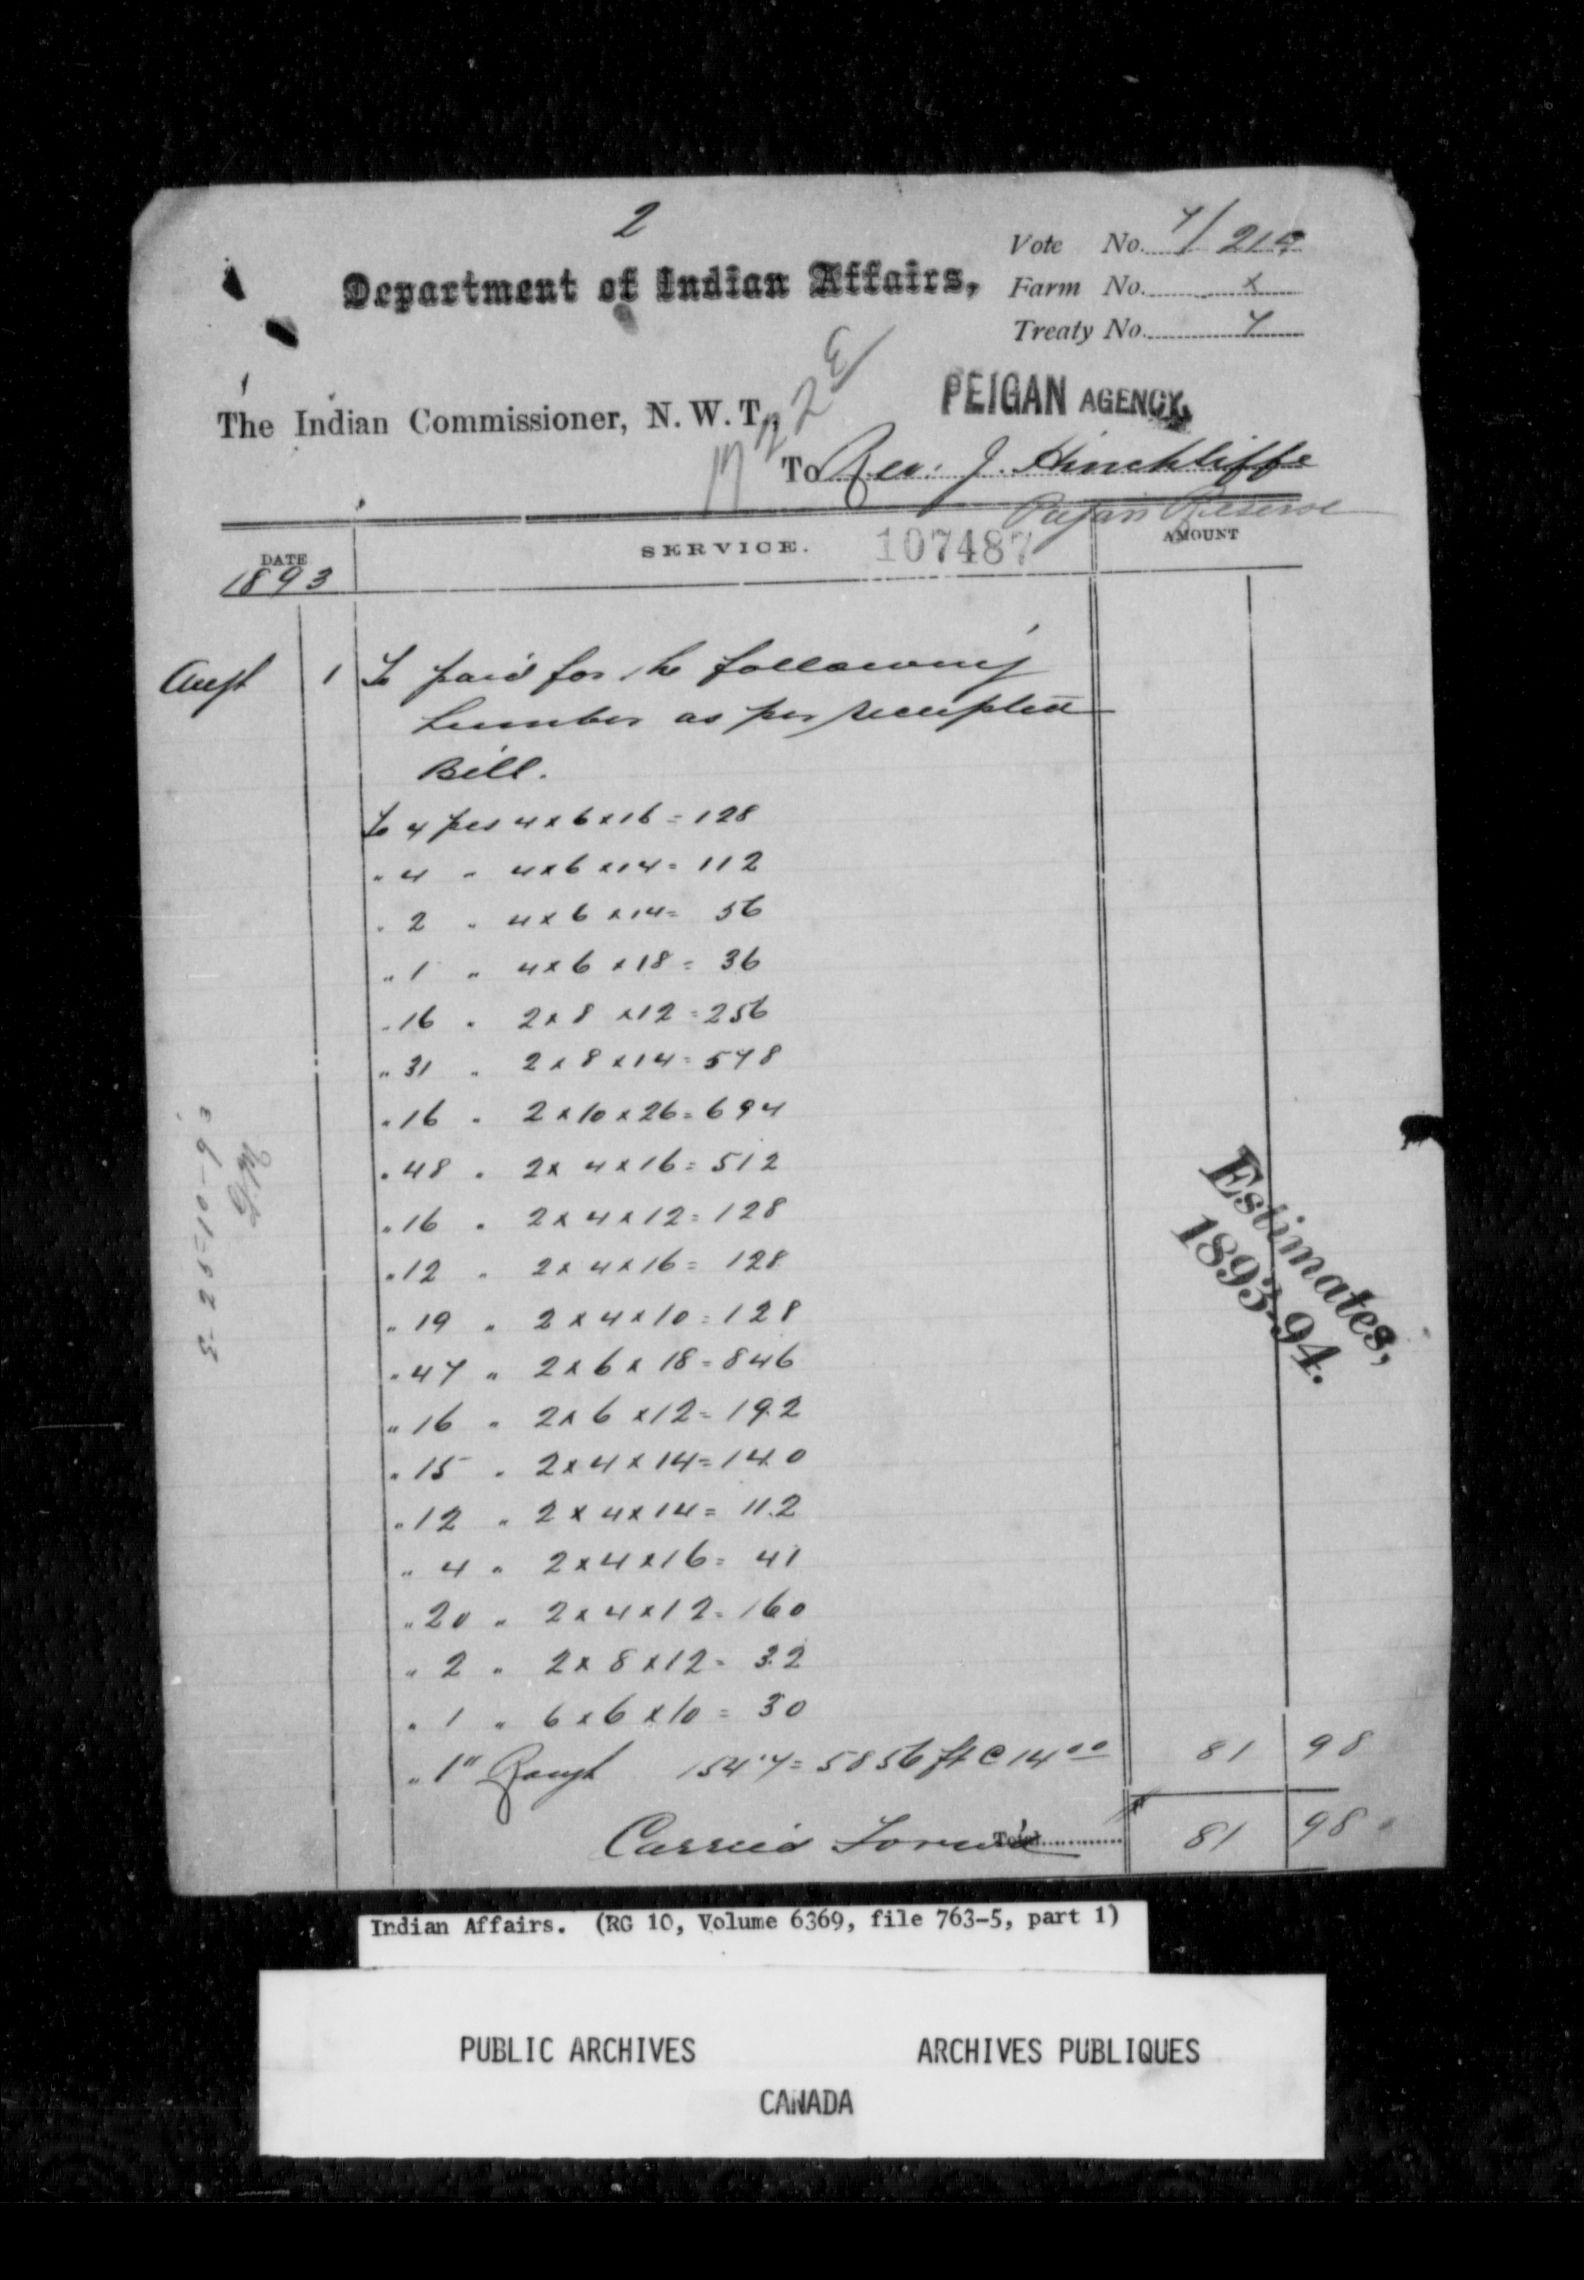 2
Vote No. 7/ 21
Department of Indian Affairs,
Farm No. x
Treaty No. 7
The Indian Commissioner, N. W. T.,
PEIGAN AGENCY,
To Rev. J. Hinchliffe
Peigan Reserve
DATE SERVICE. 107487 AMOUNT
1893
Augt 1 To paid for the following
Lumber as per receipted
Bill.
To 4 pcs 4 x 6 x 16 = 128
" 4 " 4 x 6 x 14 = 112
" 2 " 4 x 6 x 14 = 56
" 1 " 4 x 6 x 18 = 36
" 16 " 2 x 8 x 12 = 256
" 31 " 2 x 8 x 14 = 578
" 16 " 2 x 10 x 26 = 694
" 48 " 2 x 4 x 16 = 512
" 16 " 2 x 4 x 12 = 128
" 12 " 2 x 4 x 16 = 128
" 19 " 2 x 4 x 10 = 128
" 47 " 2 x 6 x 18 = 846
" 16 " 2 x 6 x 12 = 192
" 15 " 2 x 4 x 14 = 140
" 12 " 2 x 4 x 14 = 112
" 4 " 2 x 4 x 16 = 41
" 20 " 2 x 4 x 12 = 160
" 2 " 2 x 8 x 12 = 32
" 1 " 6 x 6 x 10 = 30
" 1" Rough 1547 = 5856 ft @ 14 00 81 98
Carried Forw'd Total 81 98
Estimates,
1893-94.
25-10-93
Indian Affairs. (RG 10, Volume 6369, file 763-5, part 1)
PUBLIC ARCHIVES ARCHIVES PUBLIQUES
CANADA